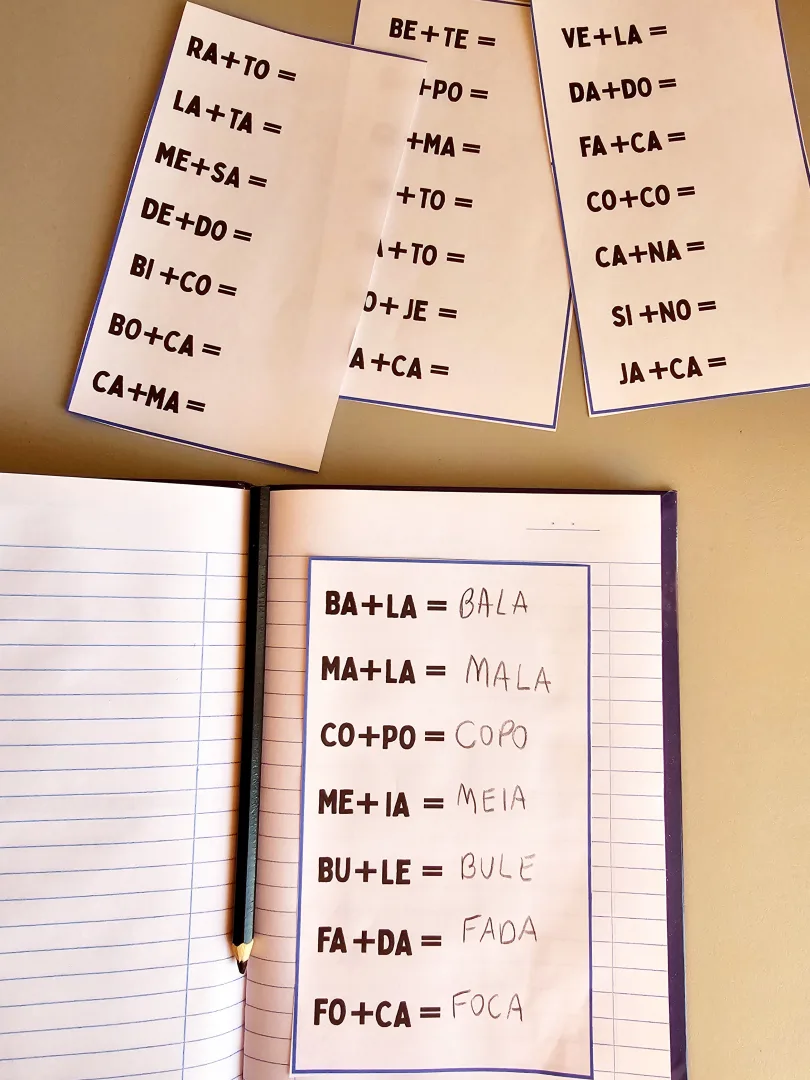 RA+TO =
LA+TA =
ME+SA =
DE+DO =
BI+CO =
BO+CA =
CA+MA =
BE+TE =
+PO =
+MA =
+TO =
+TO =
+JE =
A+CA =
VE+LA =
DA+DO =
FA+CA =
CO+CO =
CA+NA =
SI+NO =
JA+CA =
BA+LA = BALA
MA+LA = MALA
CO+PO = COPO
ME+IA = MEIA
BU+LE = BULE
FA+DA = FADA
FO+CA = FOCA